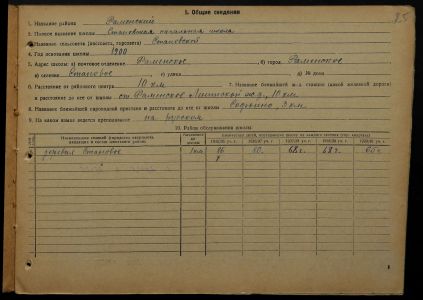 85
1. Общие сведения
1. Название района Раменский
2. Полное название школы Становская начальная школа
3. Название сельсовета (поссовета, горсовета) Становской
4. Год основания школы 1900
5. Адрес школы: а) почтовое отделение Раменское б) город Раменское
в) селение Становое г) улица д) № дома
6. Расстояние от районного центра 10 км 7. Название ближайшей ж.-д. станции (какой железной дороги)
и расстояние до нее от школы ст. Раменское Ленинской ж.д., 10 км.
8. Название ближайшей пароходной пристани и расстояние до нее от школы 3 км
9. На каком языке ведется преподавание на русском
10. Район обслуживания школы
деревня Становое 1 км 76 80 68 г. 68 г. 60 г.